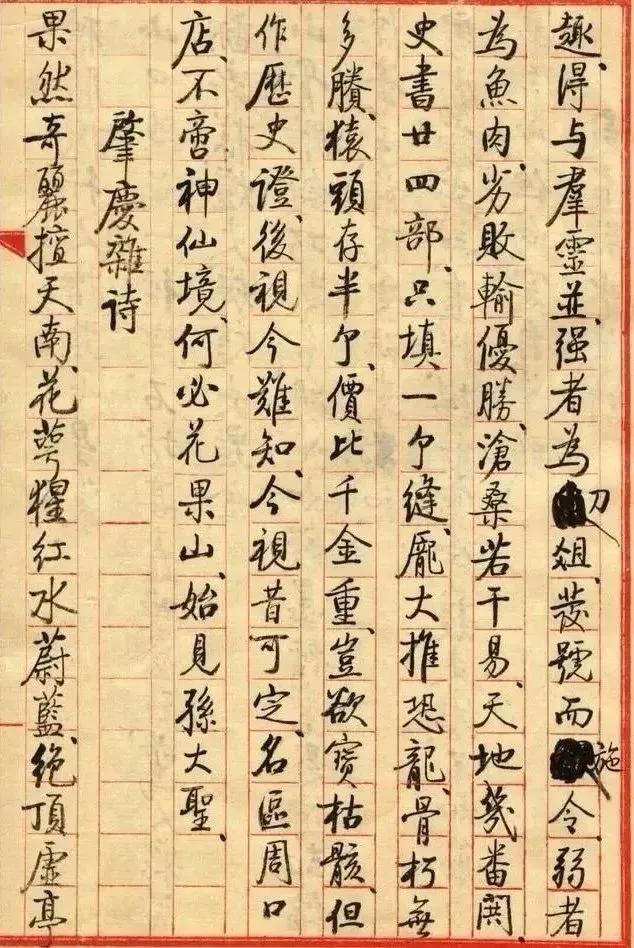 趣、得与羣靈並、强者为刀俎、發號而施令、弱者
為魚肉、劣敗輸優勝、滄桑若干易、天地幾番
史書廿四部、只填一个缝、厐大推恐龍、骨朽無
多賸、猿頭存半个、價比千金重、豈欲寳枯骸、但
作歷史證、後視今難知、今視昔可定、名區周口
店、不啻神仙境、何必花果山、始見孫大聖、
肇慶雜诗
果然奇麗擅天南、花萼猩红水蔚藍、绝頂虚亭